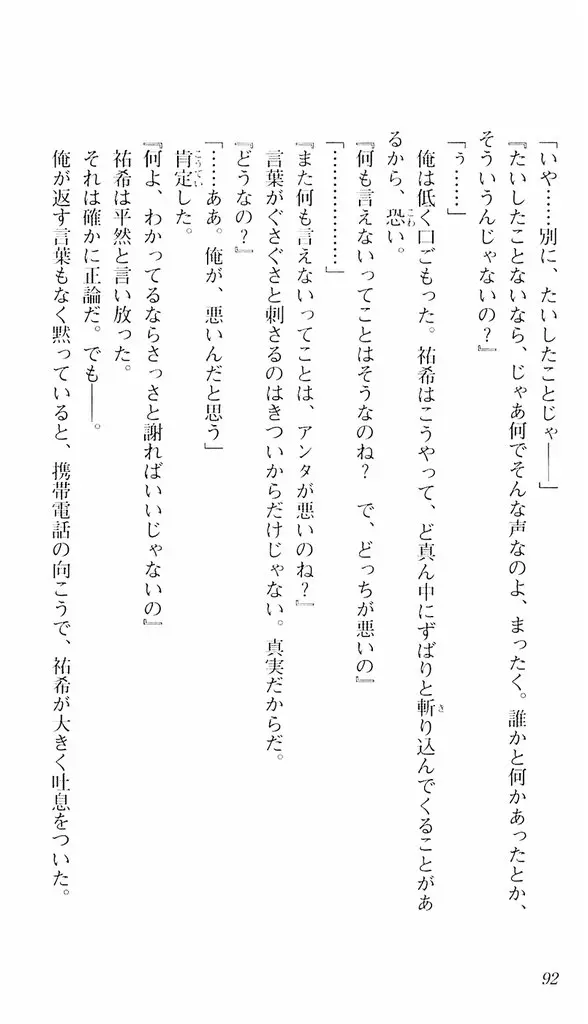 「いや……別に、たいしたことじゃ――」
『たいしたことないなら、じゃあ何でそんな声なのよ、まったく。誰かと何かあったとか、
そういうんじゃないの？』
「ぅ……」
俺は低く口ごもった。祐希はこうやって、ど真ん中にずばりと斬り込んでくることがあ
るから、恐い。
『何も言えないってことはそうなのね？　で、どっちが悪いの』
「………………」
『また何も言えないってことは、アンタが悪いのね？』
言葉がぐさぐさと刺さるのはきついからだけじゃない。真実だからだ。
『どうなの？』
「……ああ。俺が、悪いんだと思う」
肯定した。
『何よ、わかってるならさっさと謝ればいいじゃないの』
祐希は平然と言い放った。
それは確かに正論だ。でも――。
俺が返す言葉もなく黙っていると、携帯電話の向こうで、祐希が大きく吐息をついた。
92